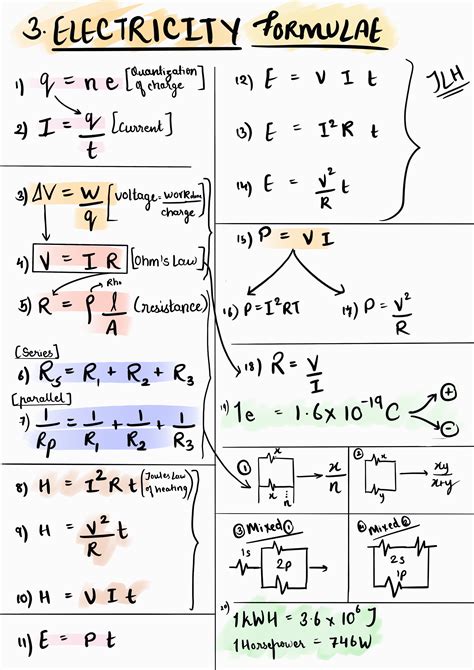 3. ELECTRICITY FORMULAE
1) q = n e [Quantization of charge]
2) I = q/t [Current]
3) ΔV = W/q [Voltage = work done/charge]
4) V = I R [Ohm's Law]
5) R = ρ l/A (resistance)
Rho
[Series]
6) Rs = R1 + R2 + R3
[parallel]
7) 1/Rp = 1/R1 + 1/R2 + 1/R3
8) H = I²R t [Joules Law of heating]
9) H = V²/R t
10) H = V I t
11) E = P t
12) E = V I t
13) E = I²R t
14) E = V²/R t
JLH
15) P = V I
16) P = I²RT
17) P = V²/R
18) R = V/I
19) 1e = 1.6 x 10⁻¹⁹ C
+
-
① x x n → x/n
② x y → xy/x+y
③ Mixed ①
1s
2P
④ Mixed ②
2s
1p
20)
1 kWH = 3.6 x 10⁶ J
1 Horsepower = 746W